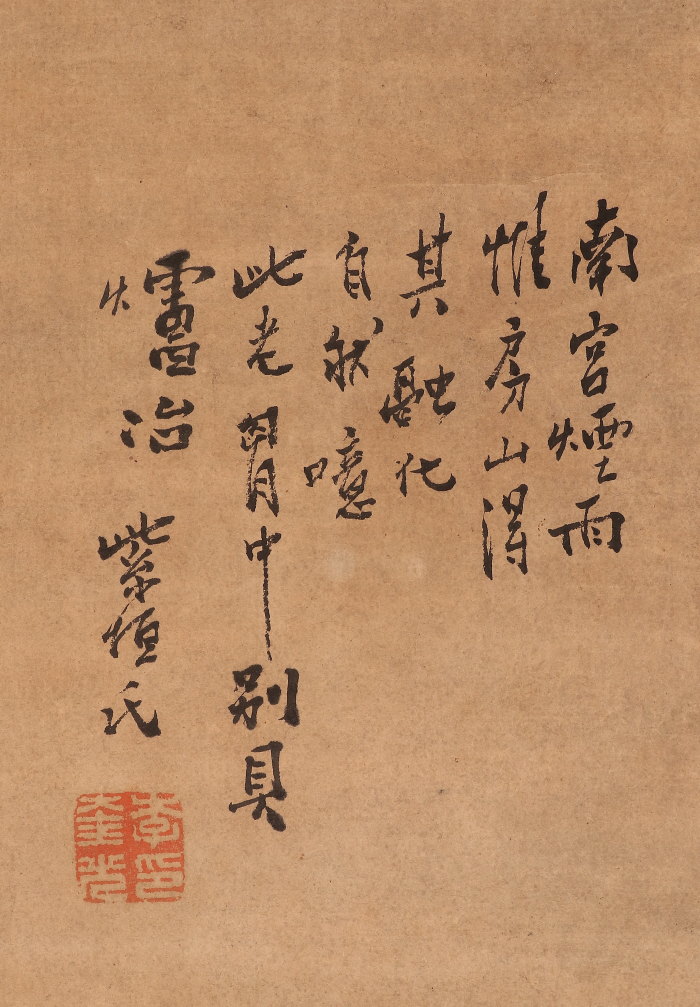 南宮煙雨
惟房山得
其融化
自然噫
此老胷中別具
爐冶 紫垣氏
李印
奎光